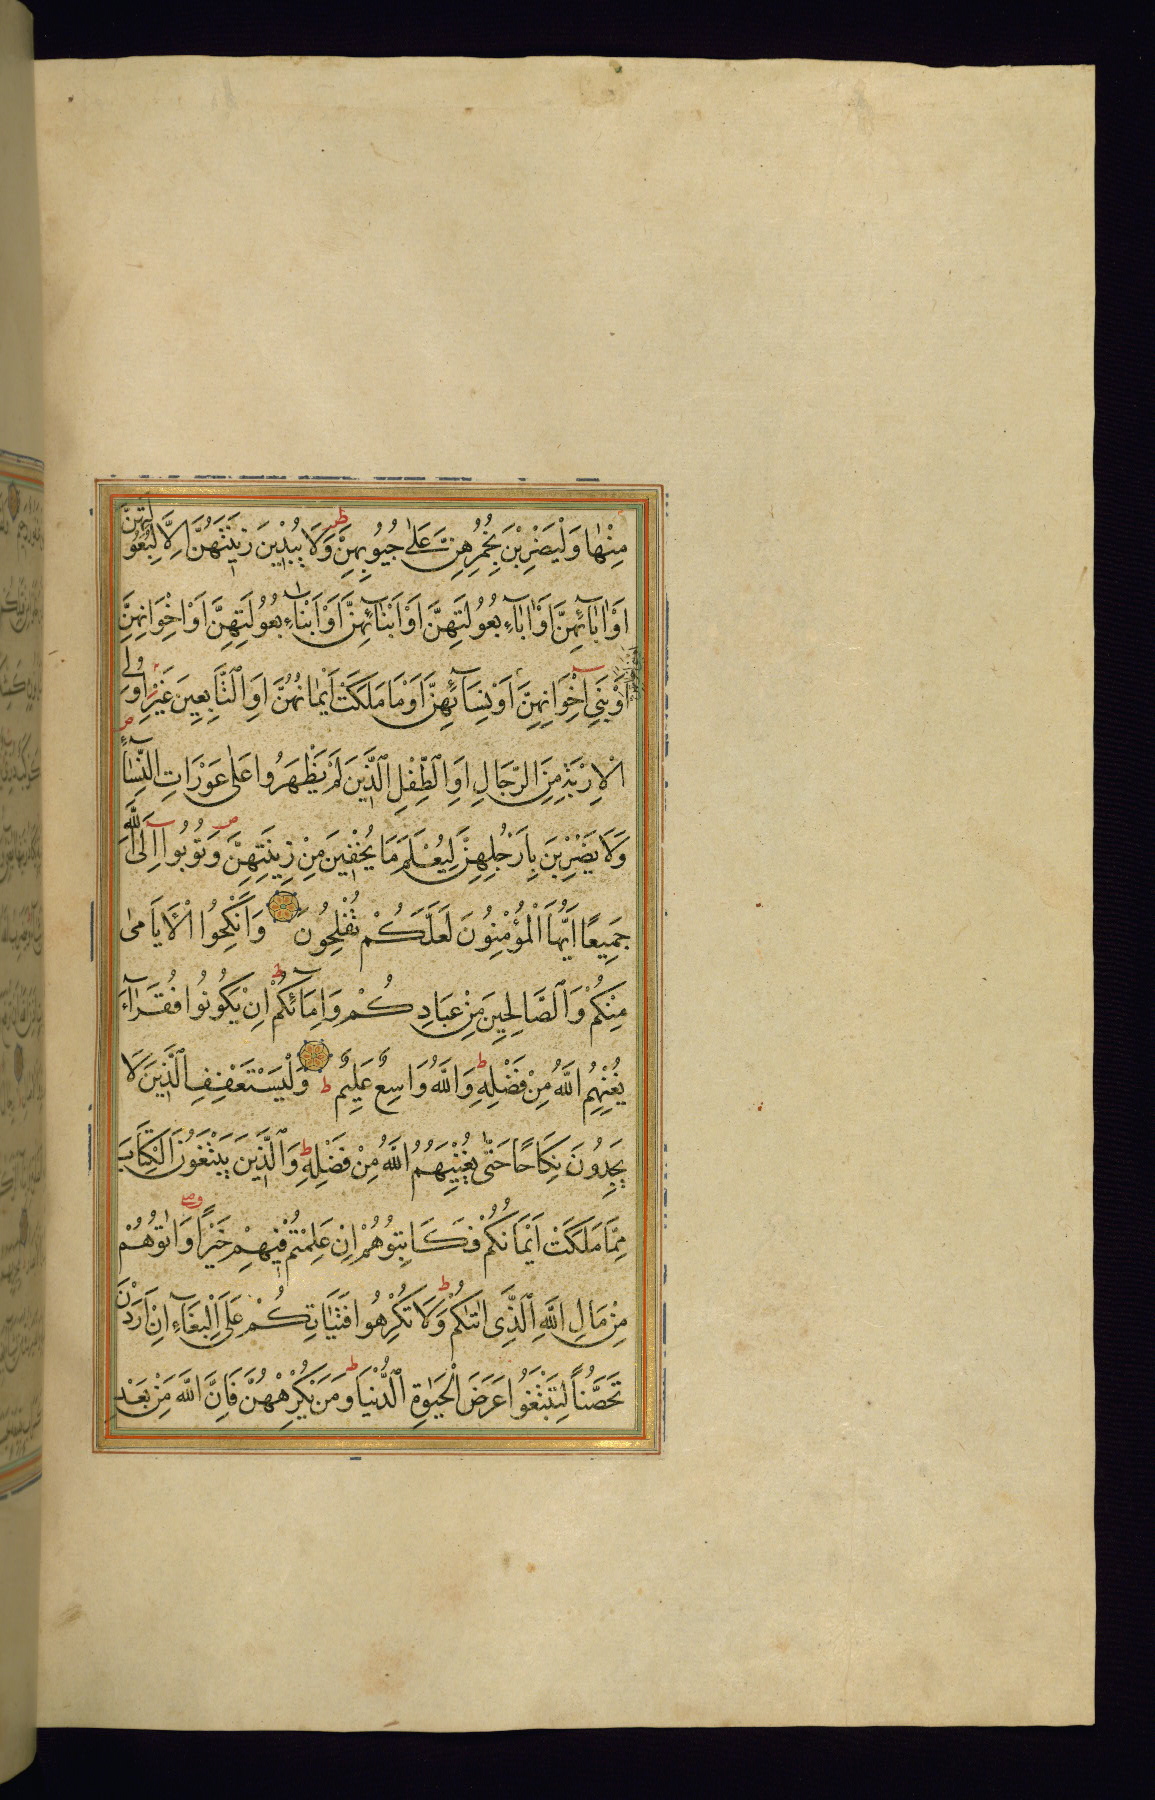 مِنْهَا وَلْيَضْرِبْنَ بِخُمُرِهِنَّ عَلٰى جُيُوبِهِنَّ وَلَا يُبْدِينَ زِينَتَهُنَّ اِلَّا لِبُعُولَتِهِنَّ
اَوْ اٰبَٓائِهِنَّ اَوْ اٰبَٓاءِ بُعُولَتِهِنَّ اَوْ اَبْنَٓائِهِنَّ اَوْ اَبْنَٓاءِ بُعُولَتِهِنَّ اَوْ اِخْوَانِهِنَّ
اَوْ بَنِٓى اِخْوَانِهِنَّ اَوْ نِسَٓائِهِنَّ اَوْ مَا مَلَكَتْ اَيْمَانُهُنَّ اَوِ التَّابِعِينَ غَيْرِ اُولِى
الْاِرْبَةِ مِنَ الرِّجَالِ اَوِ الطِّفْلِ الَّذِينَ لَمْ يَظْهَرُوا عَلٰى عَوْرَاتِ النِّسَٓاءِ
وَلَا يَضْرِبْنَ بِاَرْجُلِهِنَّ لِيُعْلَمَ مَا يُخْفِينَ مِنْ زِينَتِهِنَّ وَتُوبُٓوا اِلَى اللّٰهِ
جَمِيعًا اَيُّهَ الْمُؤْمِنُونَ لَعَلَّكُمْ تُفْلِحُونَ وَاَنْكِحُوا الْاَيَامٰى
مِنْكُمْ وَالصَّالِحِينَ مِنْ عِبَادِكُمْ وَاِمَٓائِكُمْ اِنْ يَكُونُوا فُقَرَٓاءَ
يُغْنِهِمُ اللّٰهُ مِنْ فَضْلِهِ وَاللّٰهُ وَاسِعٌ عَلِيمٌ وَلْيَسْتَعْفِفِ الَّذِينَ لَا
يَجِدُونَ نِكَاحًا حَتّٰى يُغْنِيَهُمُ اللّٰهُ مِنْ فَضْلِهِ وَالَّذِينَ يَبْتَغُونَ الْكِتَابَ
مِمَّا مَلَكَتْ اَيْمَانُكُمْ فَكَاتِبُوهُمْ اِنْ عَلِمْتُمْ فِيهِمْ خَيْرًا وَاٰتُوهُمْ
مِنْ مَالِ اللّٰهِ الَّذِٓى اٰتٰيكُمْ وَلَا تُكْرِهُوا فَتَيَاتِكُمْ عَلَى الْبِغَٓاءِ اِنْ اَرَدْنَ
تَحَصُّنًا لِتَبْتَغُوا عَرَضَ الْحَيٰوةِ الدُّنْيَا وَمَنْ يُكْرِهْهُنَّ فَاِنَّ اللّٰهَ مِنْ بَعْدِ